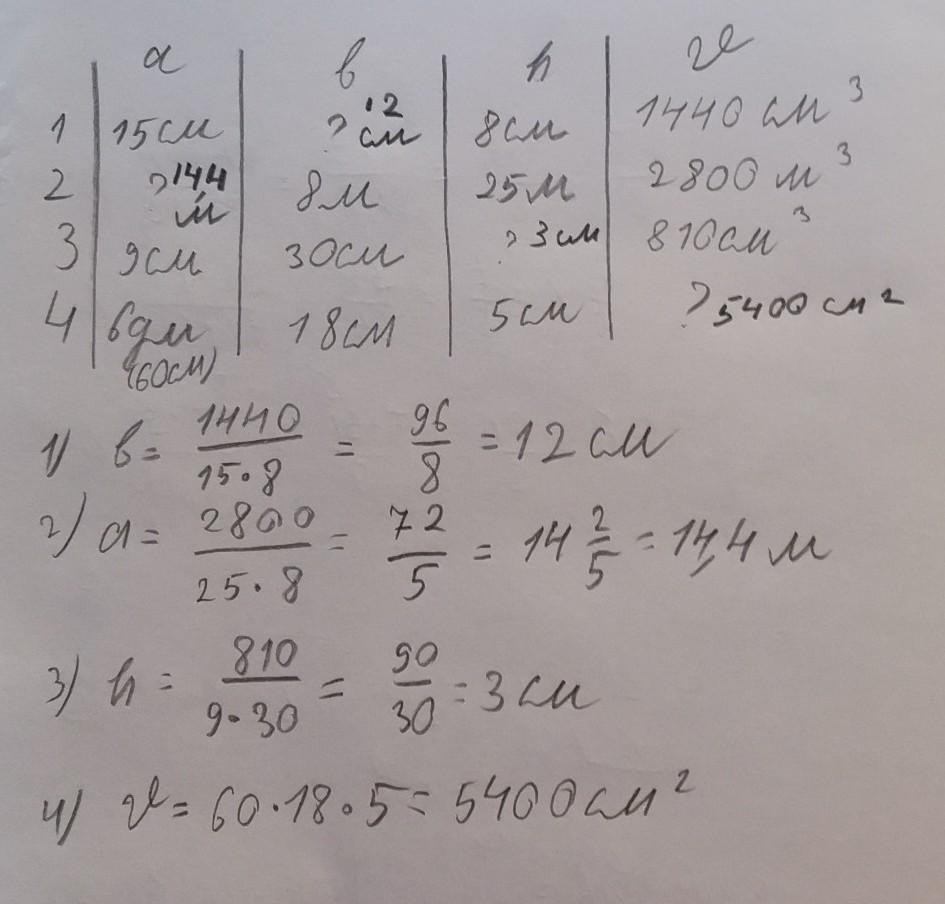 a в h v
1 15см ? 12 см 8см 1440 см³
2 ? 14,4 м 8м 25м 2800 м³
3 9см 30см ? 3см 810см³
4 6дм (60см) 18см 5см ? 5400 см²
1) в = 1440/15·8 = 96/8 = 12 см
2) a = 2800/25·8 = 72/5 = 14 2/5 = 14,4 м
3) h = 810/9·30 = 90/30 = 3 см
4) v = 60·18·5 = 5400 см²